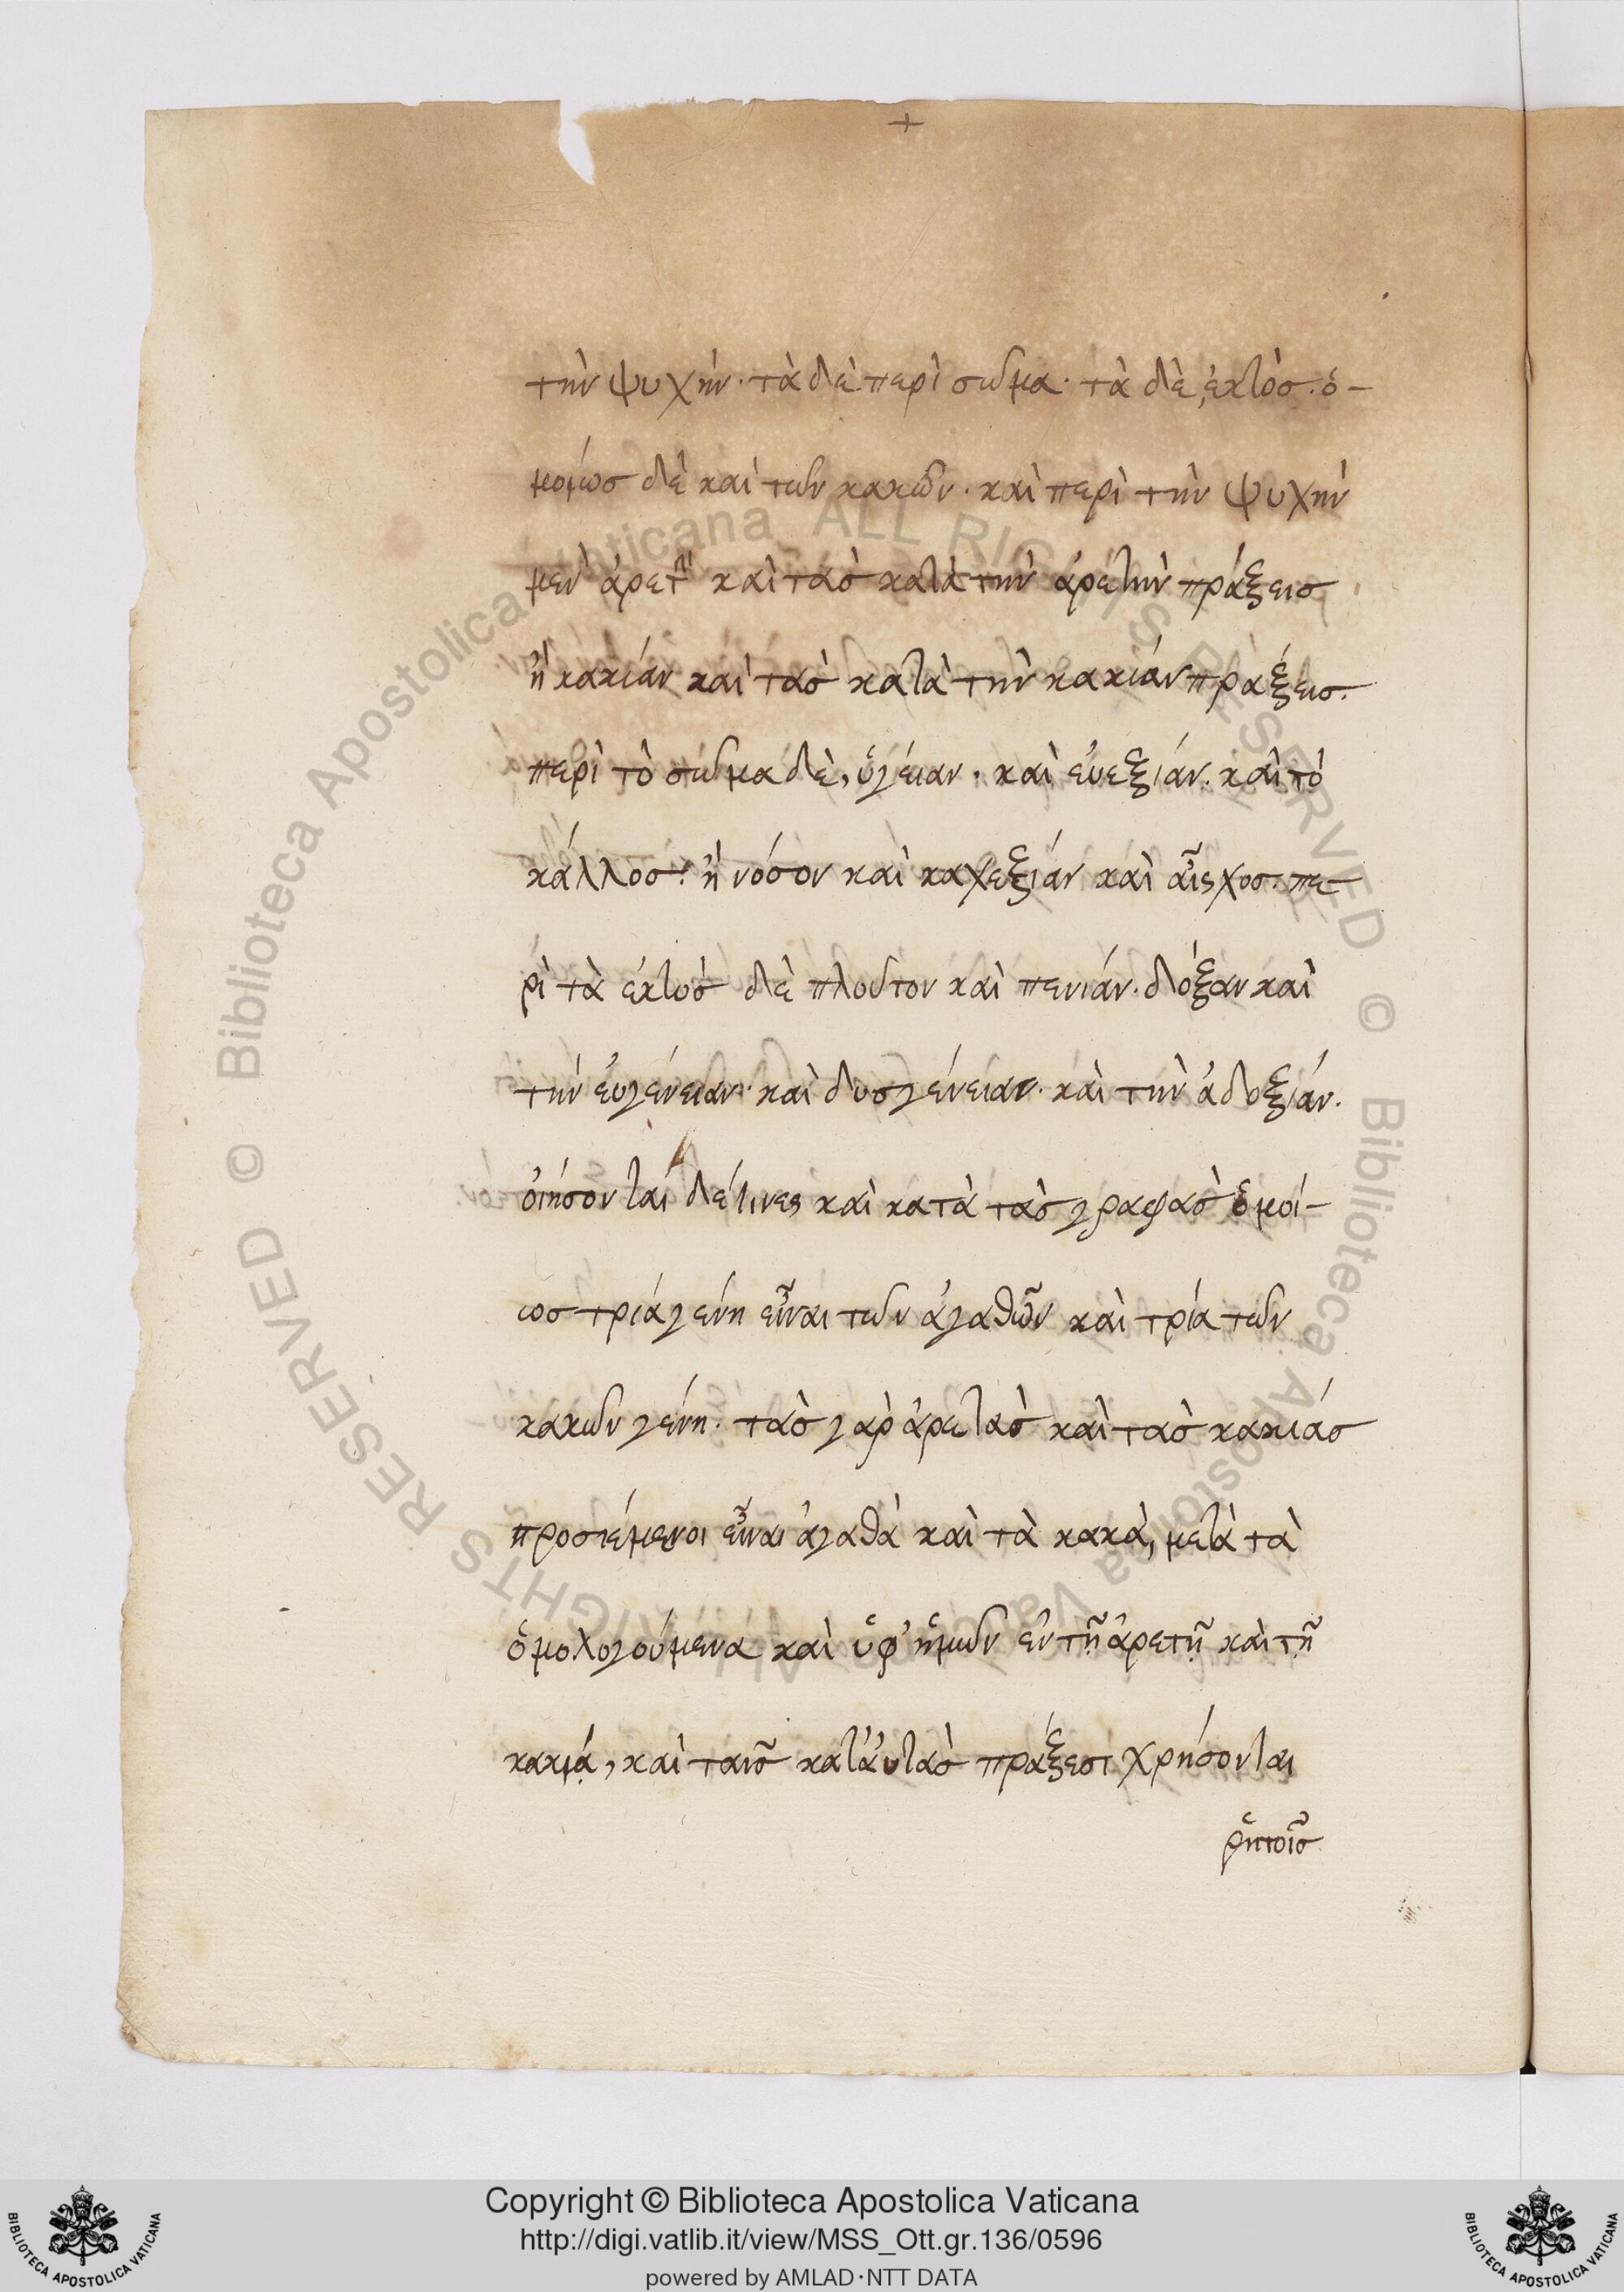 +
τὴν ψυχήν· τὰ δὲ περὶ σῶμα· τὰ δὲ, ἐκτός· ὁ-
μοίως δὲ καὶ τῶν κακῶν· καὶ περὶ τὴν ψυχὴν
μὲν ἀρετὴν καὶ τὰς κατὰ τὴν ἀρετὴν πράξεις
ἢ κακίαν καὶ τὰς κατὰ τὴν κακίαν πράξεις.
περὶ τὸ σῶμα δὲ, ὑγείαν· καὶ εὐεξίαν· καὶ τὸ
κάλλος· ἢ νόσον καὶ καχεξίαν καὶ αἶσχος· πε-
ρὶ τὰ ἐκτὸς δὲ πλοῦτον καὶ πενίαν· δόξαν καὶ
τὴν εὐγένειαν· καὶ δυσγένειαν· καὶ τὴν ἀδοξίαν.
οἰήσονται δέ τινες καὶ κατὰ τὰς γραφὰς ὁμοί-
ως τρία γένη εἶναι τῶν ἀγαθῶν καὶ τρία τῶν
κακῶν γένη· τὰς γὰρ ἀρετὰς καὶ τὰς κακίας
προσιέμενοι εἶναι ἀγαθὰ καὶ τὰ κακὰ, μετὰ τὰ
ὁμολογούμενα καὶ ὑφ' ἡμῶν ἐν τῇ ἀρετῇ καὶ τῇ
κακίᾳ, καὶ ταῖς κατ' αὐτὰς πράξεσι χρήσονται
ῥητοῖς
Copyright © Biblioteca Apostolica Vaticana
http://digi.vatlib.it/view/MSS_Ott.gr.136/0596
powered by AMLAD·NTT DATA
BIBLIOTECA APOSTOLICA VATICANA
BIBLIOTECA APOSTOLICA VATICANA
© Biblioteca Apostolica Vaticana ALL RIGHTS RESERVED © Biblioteca Apostolica Vaticana ALL RIGHTS RESERVED